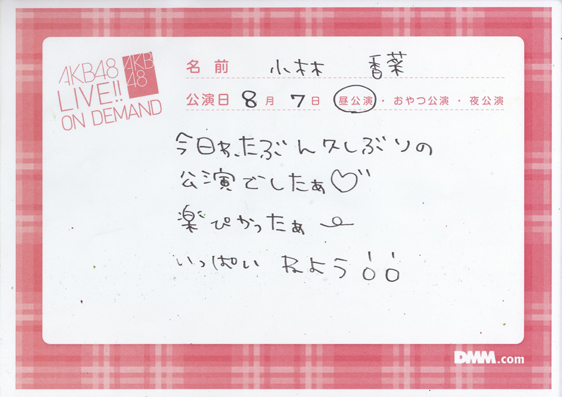 AKB48
LIVE!!
ON DEMAND
AKB
48
名前 小林 香菜
公演日 8月7日 昼公演・おやつ公演・夜公演
今日ゎ、たぶん久しぶりの
公演でしたぁ♡
楽ぴかったぁ
いっぱい ねよう!!
DMM.com